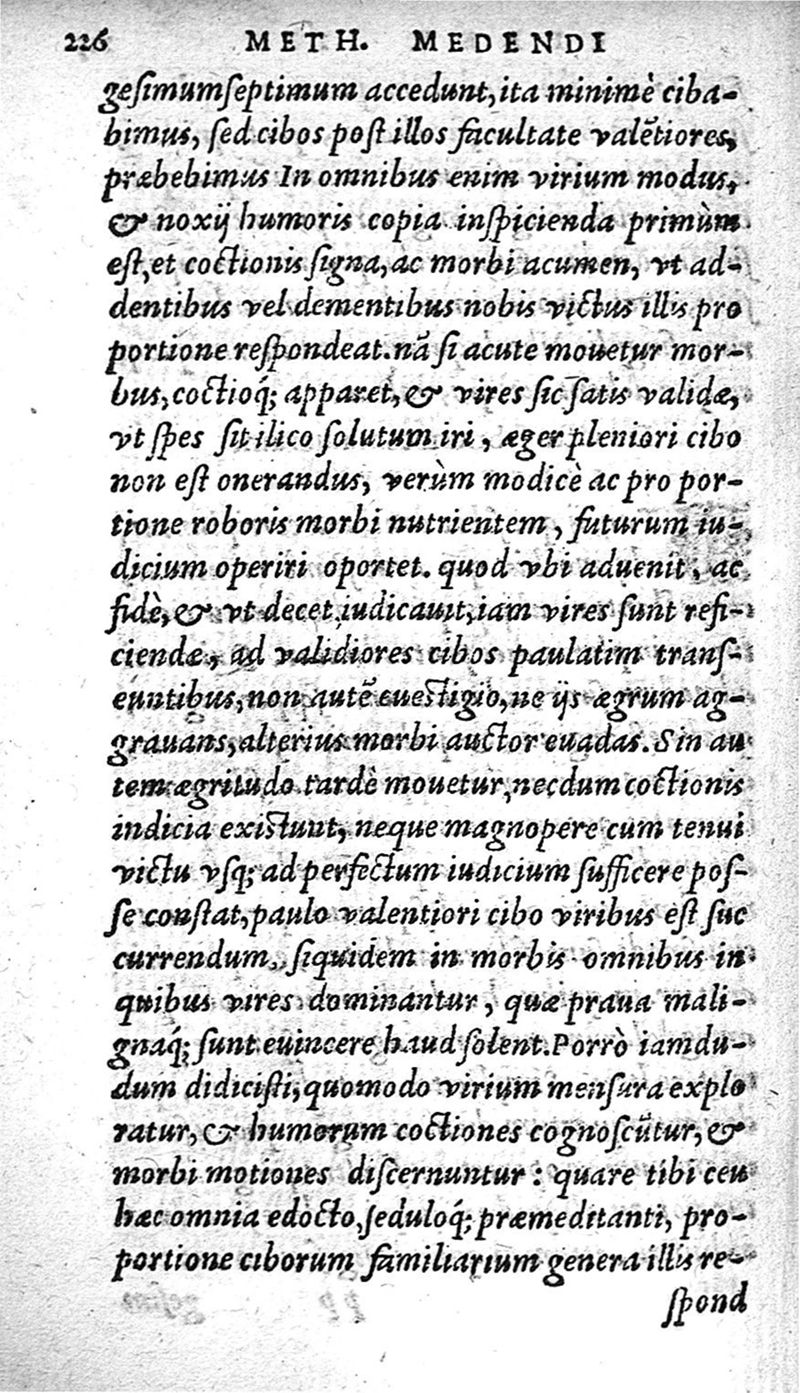 226 METH. MEDENDI
geſimumſeptimum accedunt, ita minimè ciba-
bimus, ſed cibos poſt illos facultate valẽtiores,
præbebimus In omnibus enim virium modus,
& noxij humoris copia inſpicienda primùm
eſt, et coctionis ſigna, ac morbi acumen, vt ad-
dentibus vel dementibus nobis victus illis pro
portione reſpondeat. nã ſi acute mouetur mor-
bus, coctioq́; apparet, & vires ſic ſatis validæ,
vt ſpes ſit ilico ſolutum iri, æger pleniori cibo
non eſt onerandus, verùm modicè ac pro por-
tione roboris morbi nutrientem, futurum iu-
dicium operiri oportet. quod vbi aduenit, ac
fidè, & vt decet iudicauit, iam vires ſunt refi-
ciendæ, ad validiores cibos paulatim tranſ-
euntibus, non autẽ eueſtigio, ne ijs ægrum ag-
grauans, alterius morbi auctor euadas. Sin au
tem ægritudo tardè mouetur, necdum coctionis
indicia exiſtunt, neque magnopere cum tenui
victu vſq; ad perfectum iudicium ſufficere poſ-
ſe conſtat, paulo valentiori cibo viribus eſt ſuc
currendum, ſiquidem in morbis omnibus in
quibus vires dominantur, quæ praua mali-
gnaq́; ſunt euincere haud ſolent. Porrò iamdu-
dum didiciſti, quomodo virium menſura explo
ratur, & humorum coctiones cognoſcũtur, &
morbi motiones diſcernuntur: quare tibi ceu
hæc omnia edocto, ſeduloq́; præmeditanti, pro-
portione ciborum familiarium genera illis re-
ſpond